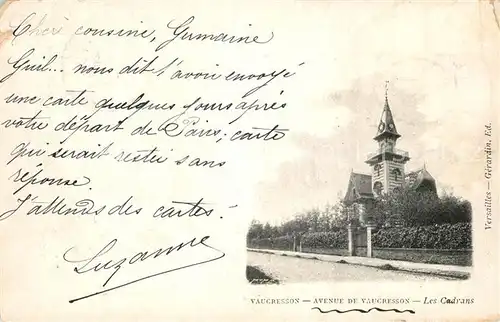 Chère cousine, Germaine
Guil... nous dit t'avoir envoyé
une carte quelques jours après
votre départ de Paris, carte
qui serait restée sans
réponse.
J'attends des cartes.
Suzanne
VAUCRESSON — AVENUE DE VAUCRESSON — Les Cadrans
Versailles — Gérardin, Ed.